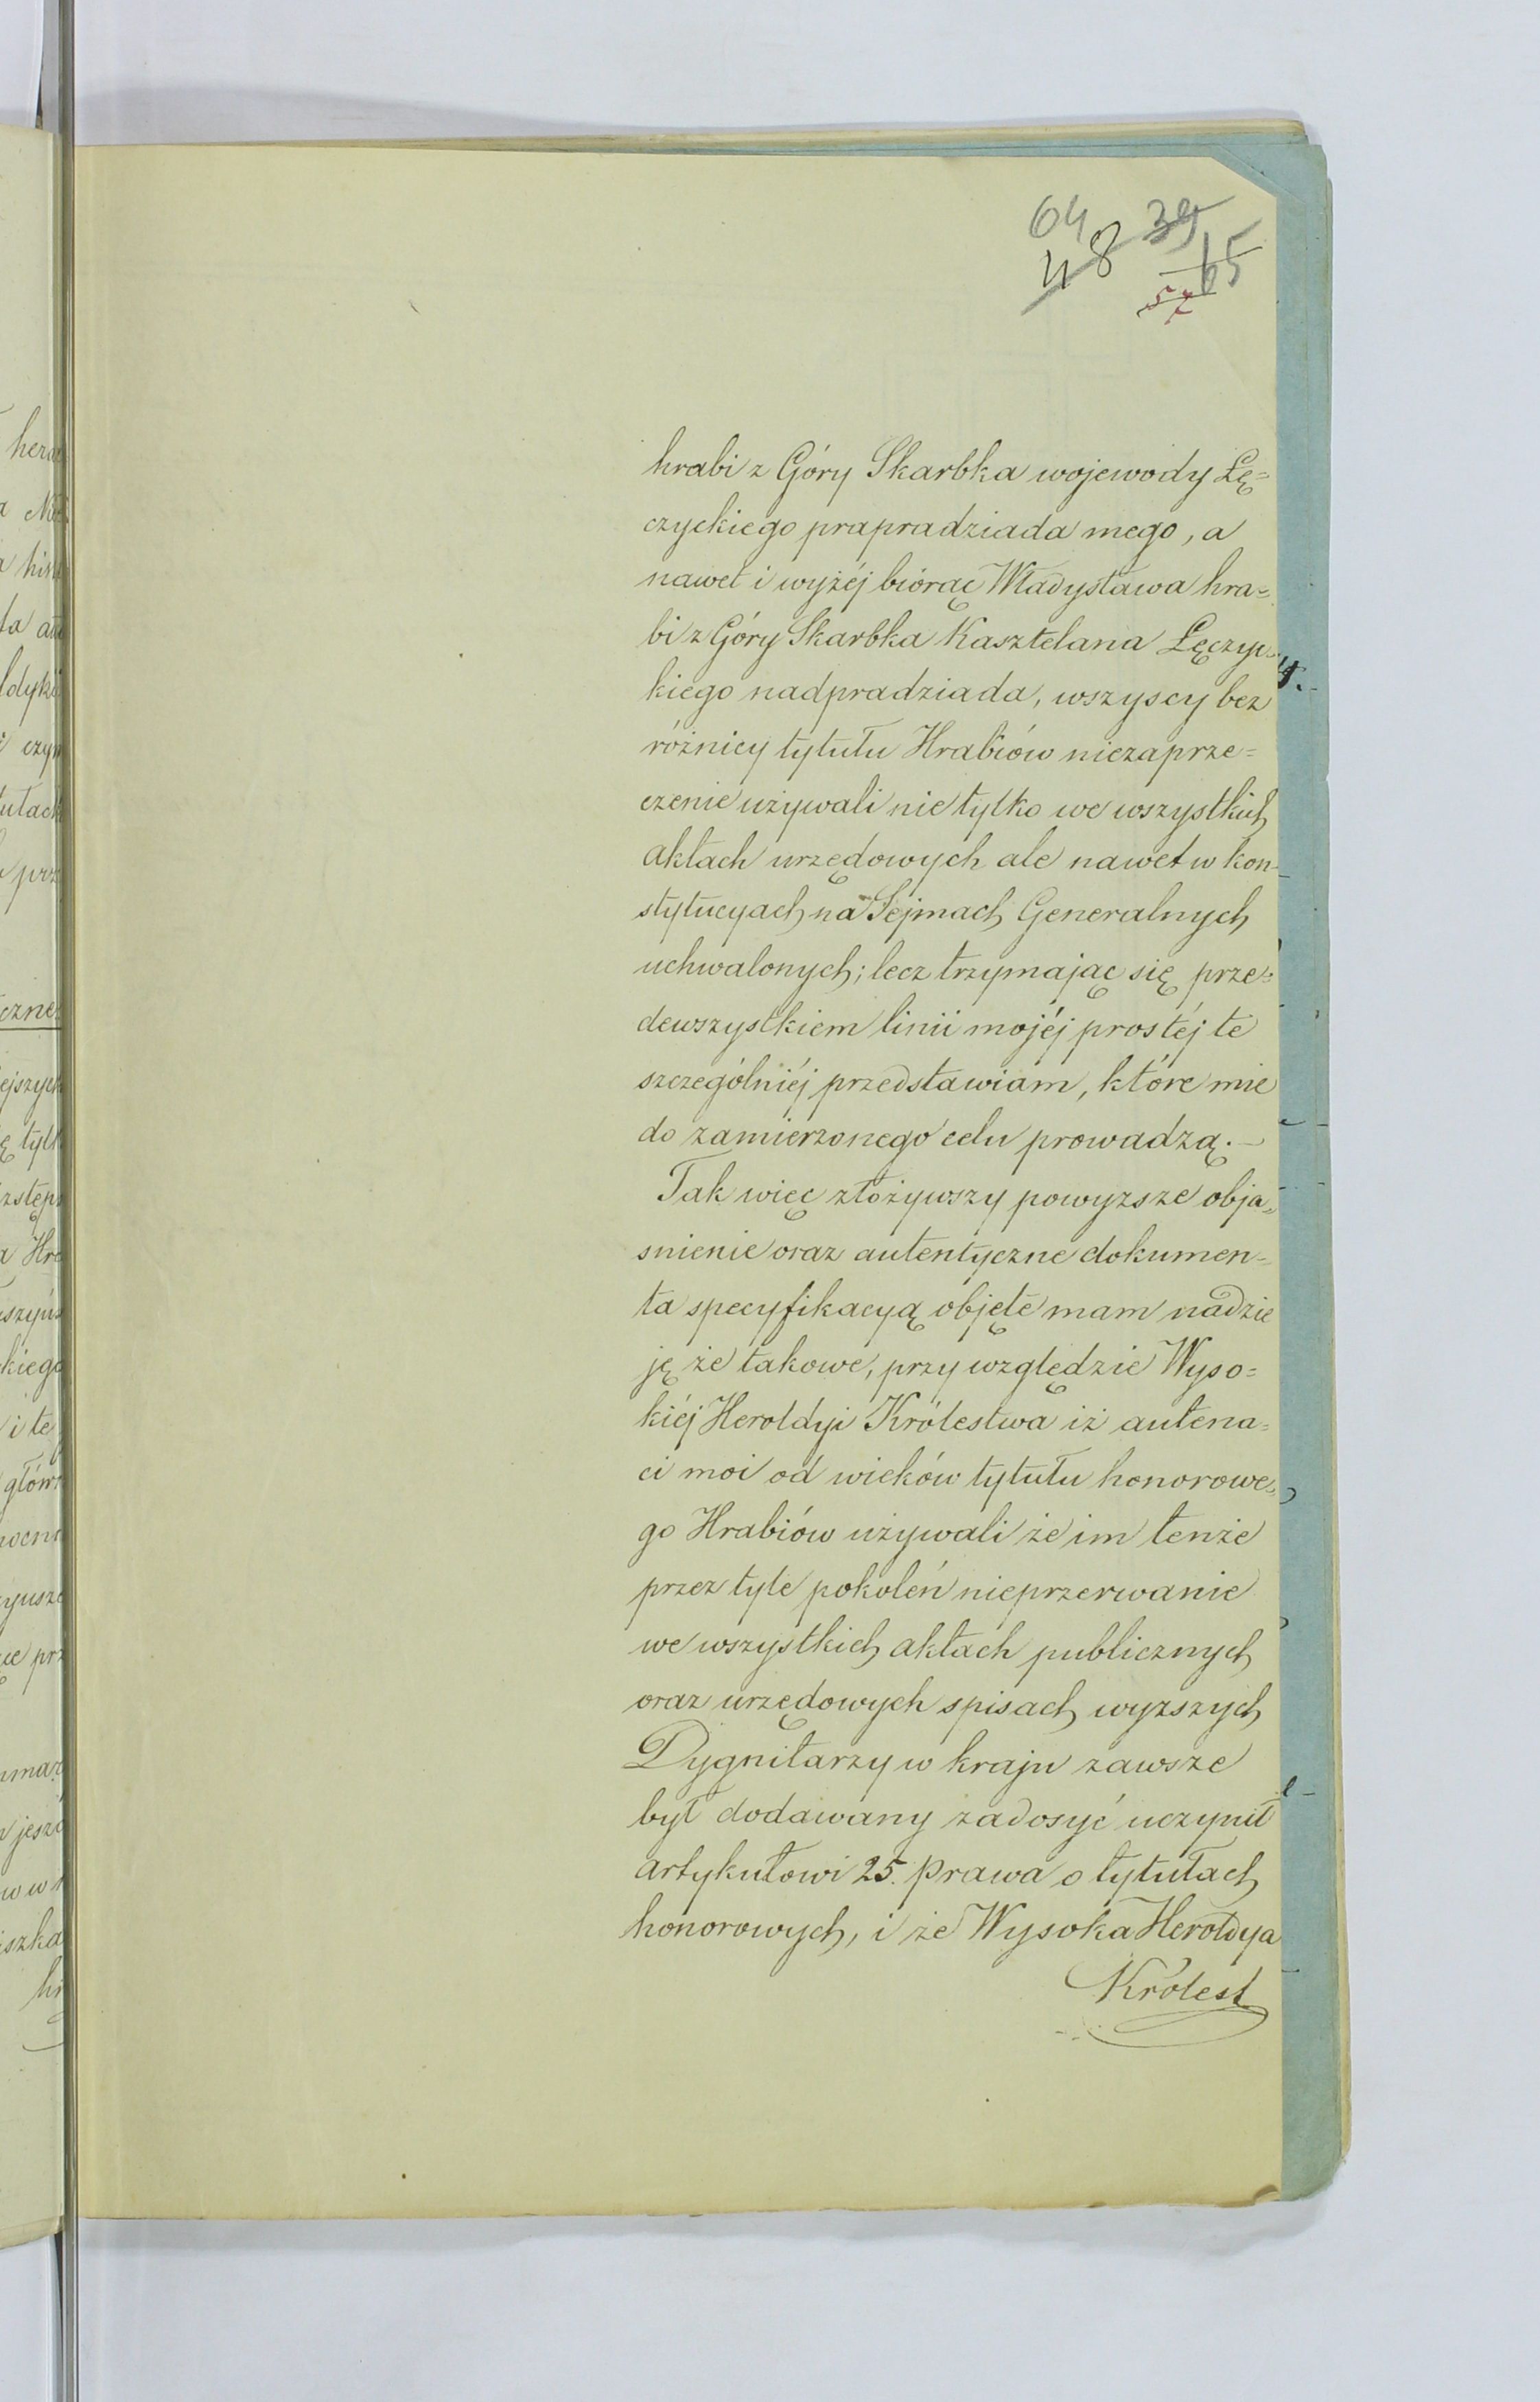 64 39
48 15
57 65
hrabi z Góry Skarbka wojewody Łę=
czyckiego prapradziada mego, a
nawet i wyżéj biorąc Władysława hra=
bi z Góry Skarbka Kasztelana Łęczyc=
kiego nadpradziada, wszyscy bez
różnicy tytułu Hrabiów niezaprze=
czenie używali nie tylko we wszystkich
aktach urzędowych ale nawet w kon-
stytucyach na Sejmach Generalnych
uchwalonych; lecz trzymając się prze=
dewszystkiem linii mojéj prostéj te
szczególniéj przedstawiam, które mie
do zamierzonego celu prowadzą. —
Tak więc złożywszy powyższe obja=
snienie oraz autentyczne dokumen=
ta specyfikacyą objęte mam nadzie
ję że takowe, przy względzie Wyso=
kiéj Heroldyi Królestwa iż antena=
ci moi od wieków tytułu honorowe=
go Hrabiów używali że im tenże
przez tyle pokoleń nieprzerwanie
we wszystkich aktach publicznych
oraz urzędowych spisach wyższych
Dygnitarzy w kraju zawsze
był dodawany zadosyć uczynił
artykułowi 25. prawa o tytułach
honorowych, i że Wysoka Heroldya
Królest